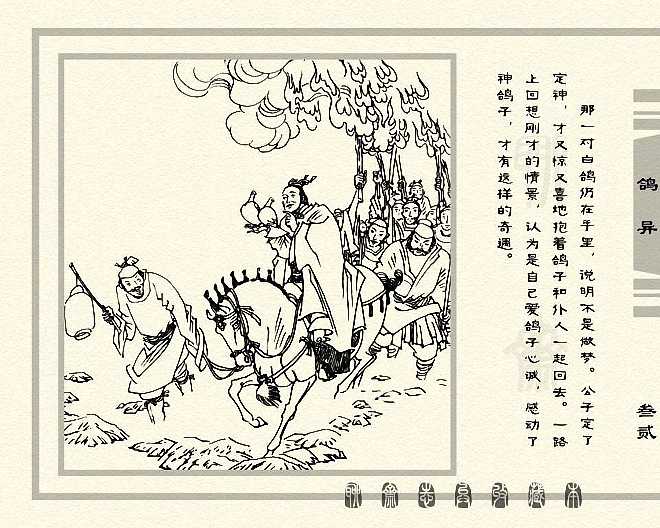 那一对白鸽仍在手里，说明不是做梦。公子定了
定神，才又惊又喜地抱着鸽子和仆人一起回去。一路
上回想刚才的情景，认为是自己爱鸽子心诚，感动了
神鸽子，才有这样的奇遇。
鸽异
叁贰